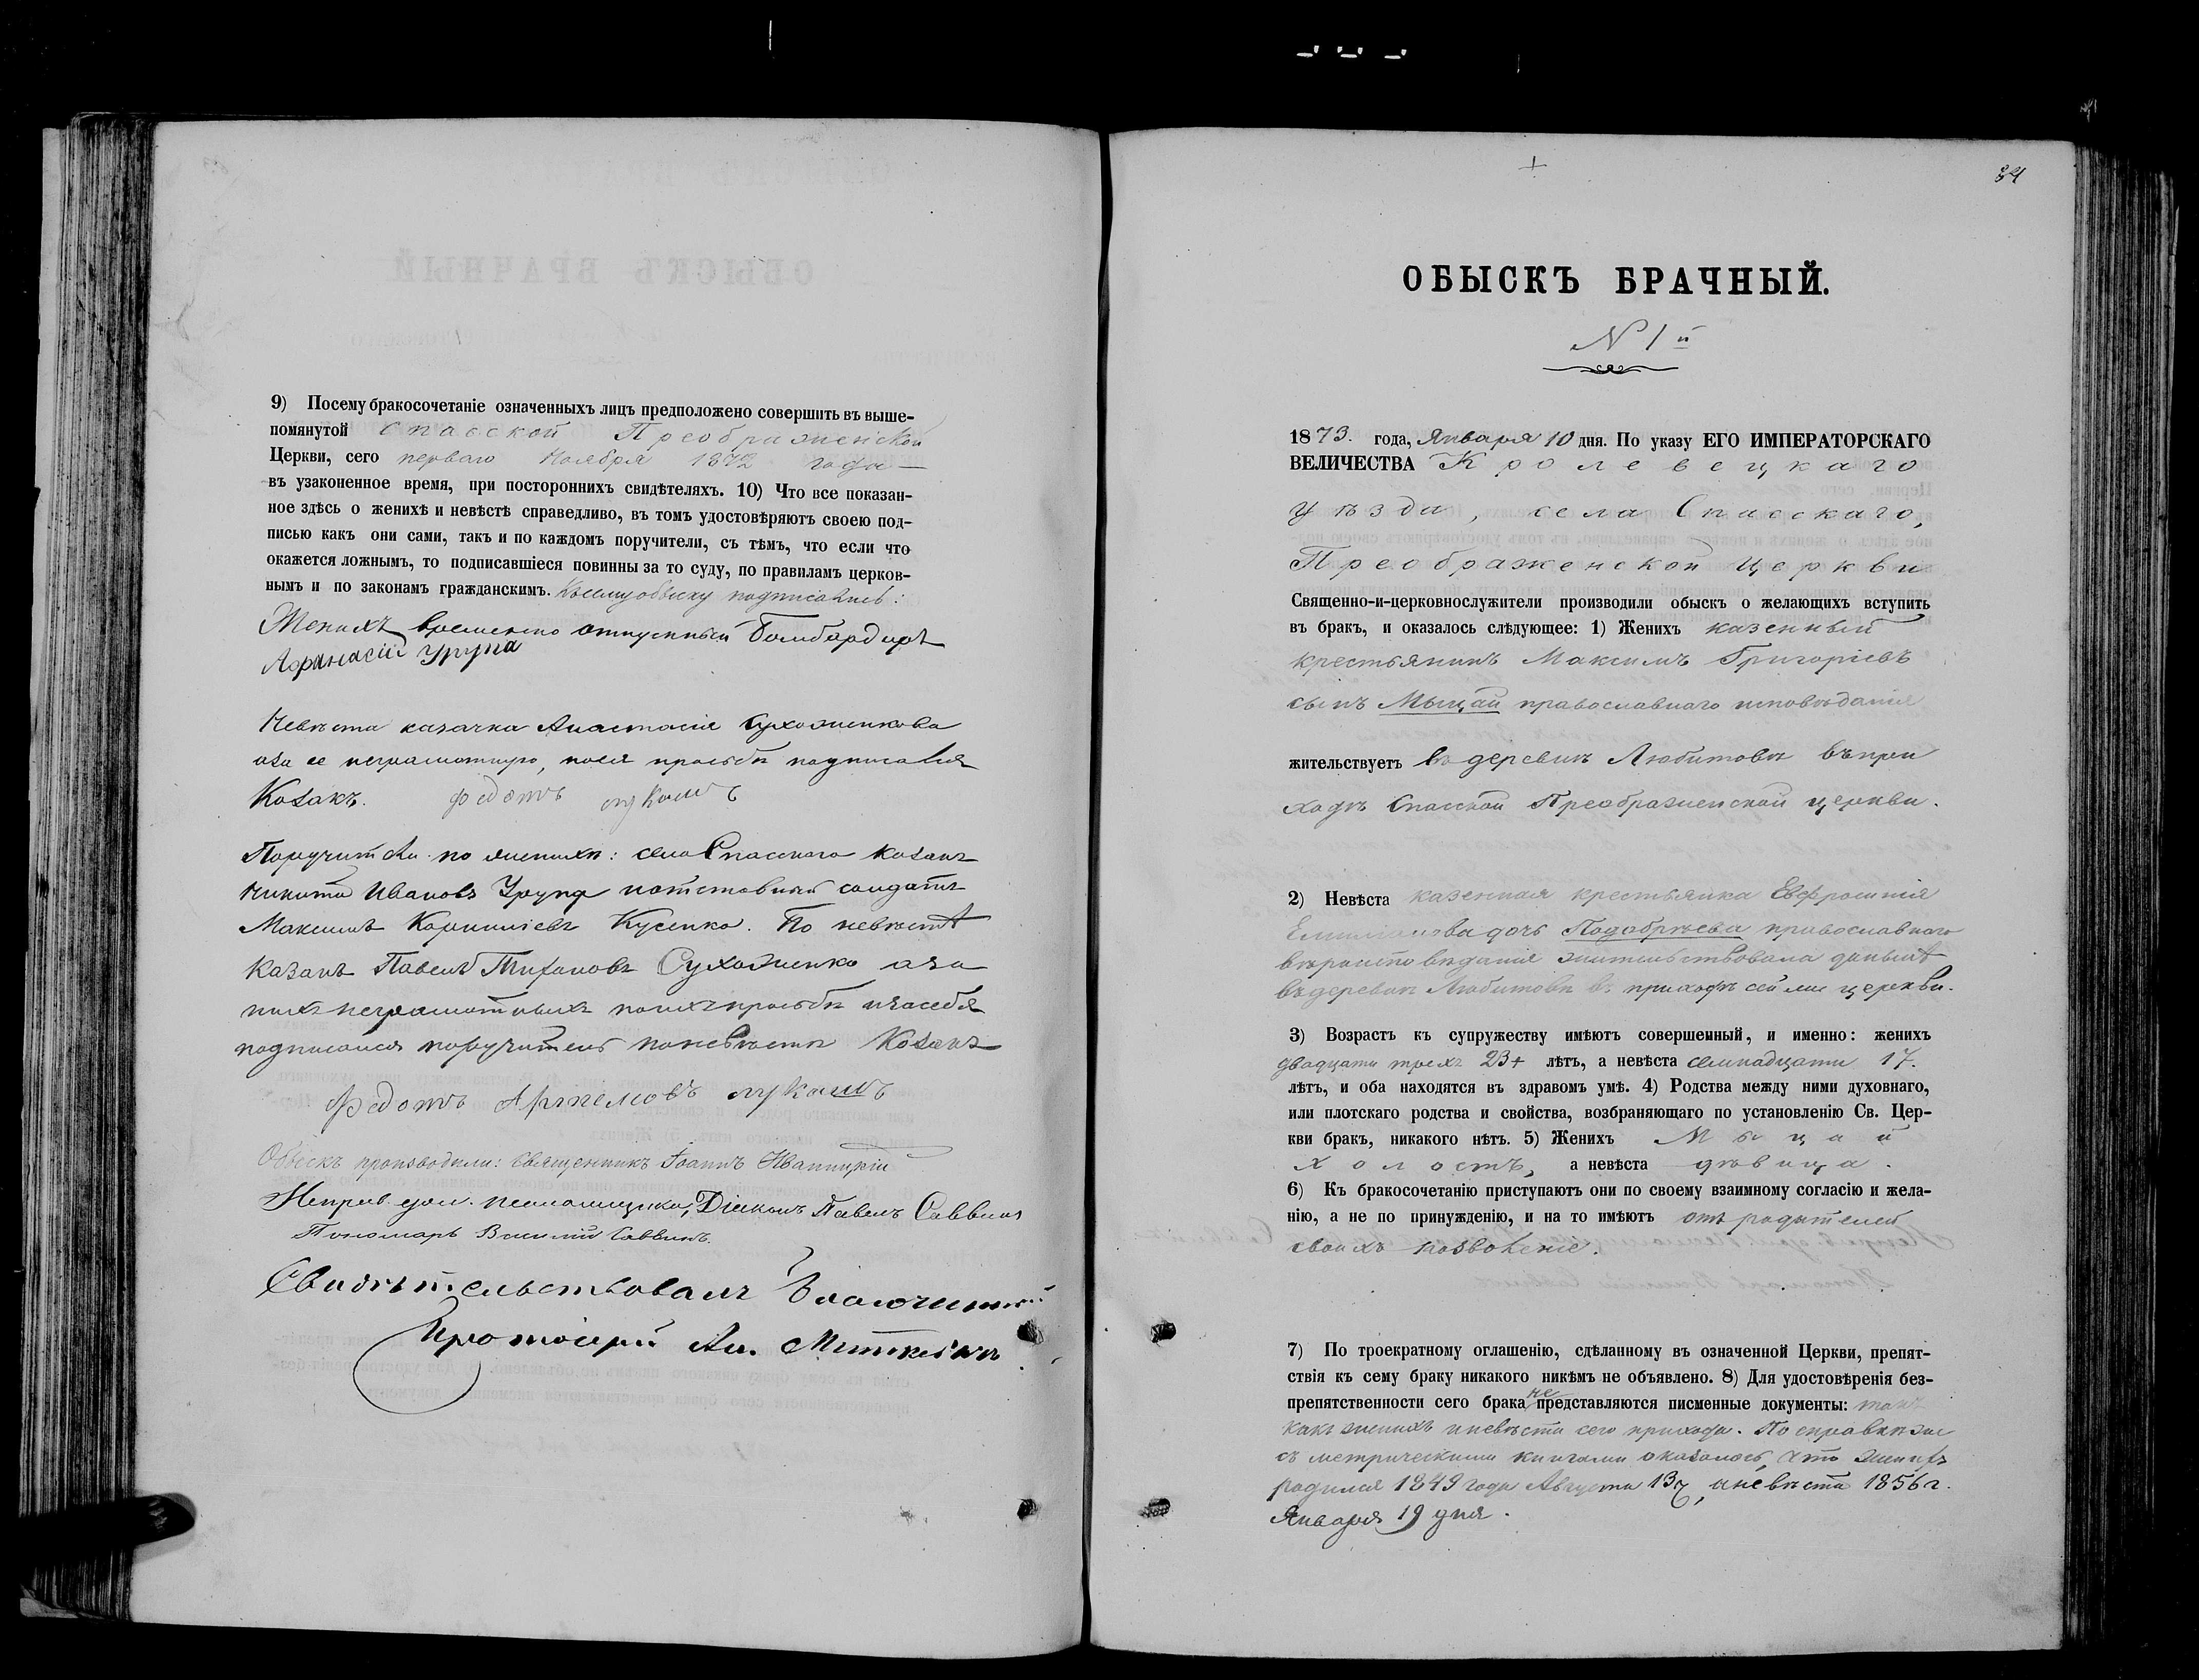 9) Посему бракосочетаніе означенныхъ лицъ предположено совершить въ выше-
помянутой Спасской Преображенской
Церкви, сего перваго Ноября 1872 года —
въ узаконенное время, при постороннихъ свидѣтеляхъ. 10) Что все показан-
ное здѣсь о женихѣ и невѣстѣ справедливо, въ томъ удостовѣряютъ своею под-
писью какъ они сами, такъ и по каждомъ поручители, съ тѣмъ, что если что
окажется ложнымъ, то подписавшіеся повинны за то суду, по правиламъ церков-
нымъ и по законамъ гражданскимъ. Къ сему обыску подписались:
Женихъ временно отпускный Бомбардиръ
Афанасій Урупа
Невѣста казачка Анастасія Сухоженкова
а за ее неграмотную, по ея просьбѣ подписался
Козакъ. Федотъ лукашъ
Поручители по женихѣ: села Спасскаго козакъ
Никита Ивановъ Урупа и отставный солдатъ
Максимъ Корниліевъ Кусенко. По невѣстѣ
казакъ Павелъ Тихоновъ Сухоженко а за
нихъ неграмотныхъ по ихъ просьбѣ и за себя
подписался поручитель по невѣстѣ Козакъ
Федотъ Артемовъ лукашъ
Обыскъ производили: Священникъ Іоаннъ
Исправ. дол. псаломщика, Діаконъ Павелъ Саввинъ
Пономарь Василій Саввинъ.
Свидѣтельствовалъ Благочинный
Протоіерей Ал. Миткевичъ
84
ОБЫСКЪ БРАЧНЫЙ.
N 1й
1873. года, Января 10 дня. По указу ЕГО ИМПЕРАТОРСКАГО
ВЕЛИЧЕСТВА Кролевецкаго
уѣзда, села Спасскаго,
Преображенской Церкви
Священно-и-церковнослужители производили обыскъ о желающихъ вступить
въ бракъ, и оказалось слѣдующее: 1) Женихъ казенный
крестьянинъ Максимъ Григоріевъ
сынъ Мыцай православнаго исповѣданія
жительствуетъ въ деревнѣ Любитовкѣ въ при
ходѣ Спасской Преображенской церкви.
2) Невѣста казенная крестьянка Евфросинія
Емиліанова дочь Подобрѣева православнаго
вѣроисповѣданія жительствовала до нынѣ
въ деревнѣ Любитовкѣ въ приходѣ сей же церкви.
3) Возрастъ къ супружеству имѣютъ совершенный, и именно: женихъ
двадцати трехъ 23+ лѣтъ, а невѣста семнадцати 17.
лѣтъ, и оба находятся въ здравомъ умѣ. 4) Родства между ними духовнаго,
или плотскаго родства и свойства, возбраняющаго по установленію Св. Цер-
кви бракъ, никакого нѣтъ. 5) Женихъ Мыцай
холостъ, а невѣста дѣвица.
6) Къ бракосочетанію приступаютъ они по своему взаимному согласію и жела-
нію, а не по принужденію, и на то имѣютъ отъ родителей
своихъ позволеніе.
7) По троекратному оглашенію, сдѣланному въ означенной Церкви, препят-
ствія къ сему браку никакого никѣмъ не объявлено. 8) Для удостовѣренія без-
препятственности сего брака не представляются писменные документы: такъ
какъ женихъ и невѣста сего прихода. По справкѣ же
съ метрическими книгами оказалось, что женихъ
родился 1849 года Августа 13, а невѣста 1856 г.
Января 19 дня.